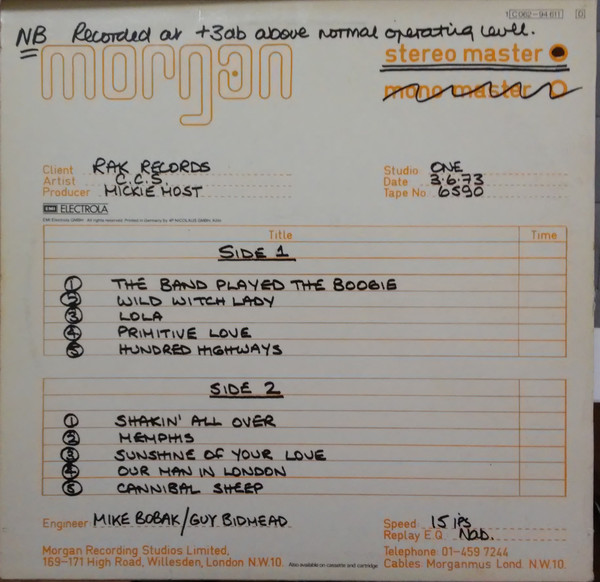 1C 062-94 611 D
NB Recorded at +3db above normal operating level.
morgan
stereo master
mono master
Client RAK RECORDS
Artist C.C.S.
Producer MICKIE MOST
Studio ONE
Date 3.6.73
Tape No 6590
EMI ELECTROLA
Title Time
SIDE 1
1 THE BAND PLAYED THE BOOGIE
2 WILD WITCH LADY
3 LOLA
4 PRIMITIVE LOVE
5 HUNDRED HIGHWAYS
SIDE 2
1 SHAKIN' ALL OVER
2 MEMPHIS
3 SUNSHINE OF YOUR LOVE
4 OUR MAN IN LONDON
5 CANNIBAL SHEEP
Engineer MIKE BOBAK/GUY BIDMEAD
Speed 15 ips
Replay E.Q. NAB.
Morgan Recording Studios Limited,
169-171 High Road, Willesden, London N.W.10.
Also available on cassette and cartridge
Telephone 01-459 7244
Cables Morganmus Lond. N.W.10.